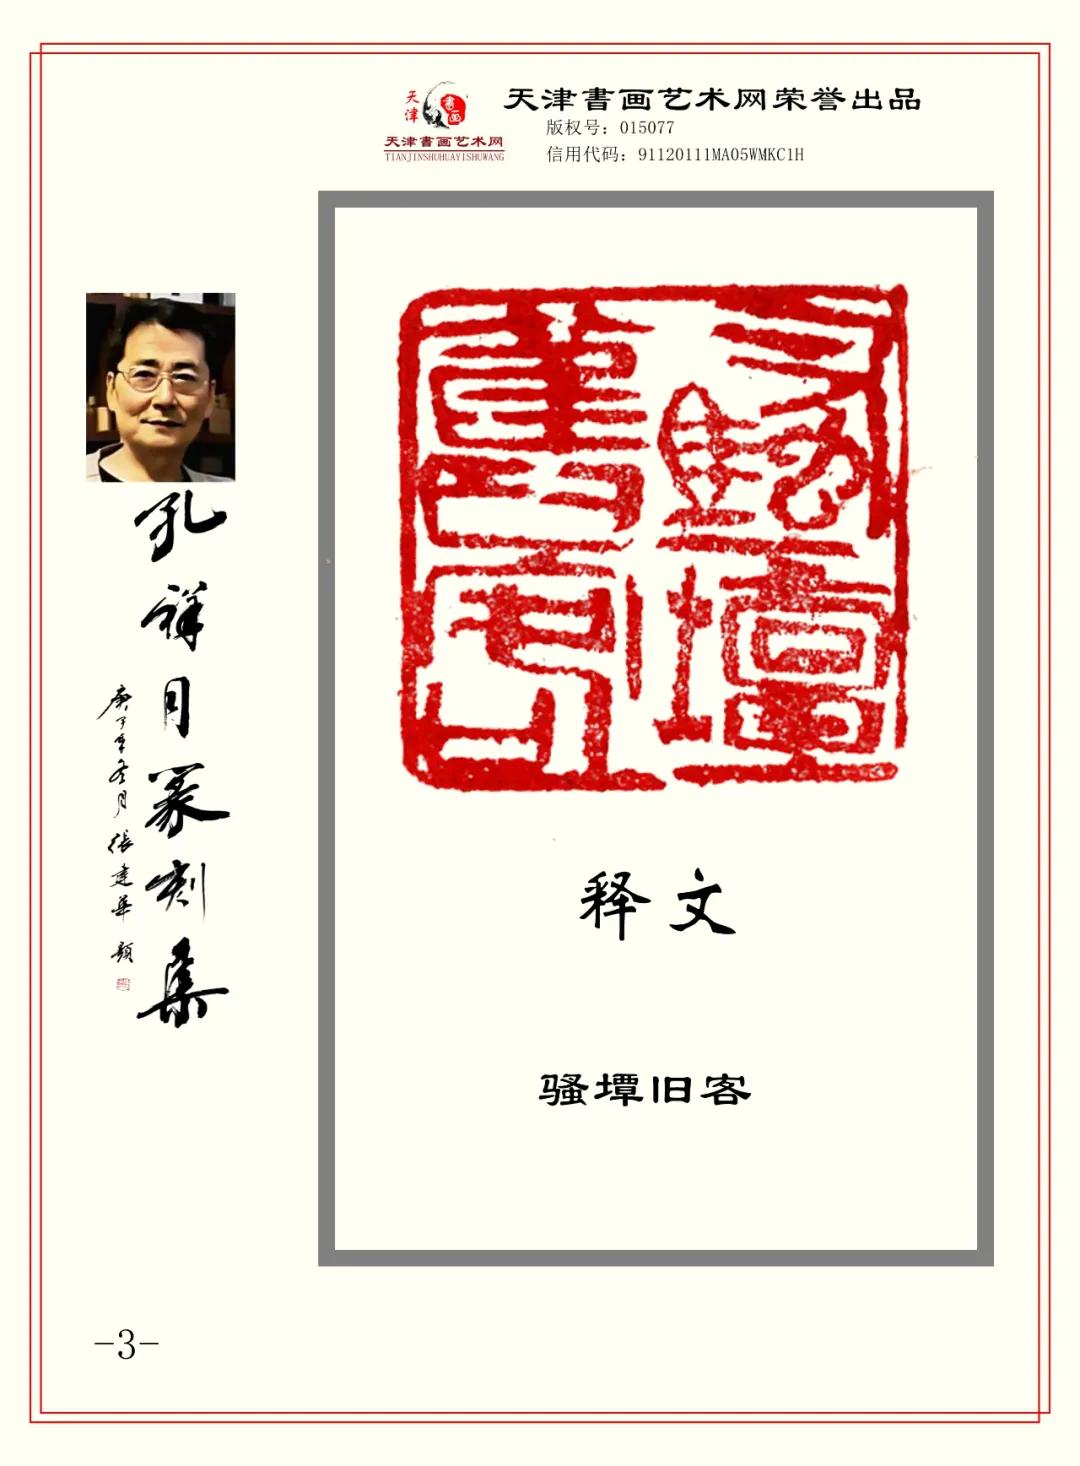 天津書画艺术网荣誉出品
版权号：015077
信用代码：91120111MA05WMKC1H
天津
書画
天津書画艺术网
TIANJINSHUHUAYISHUWANG
孔祥月篆刻集
庚子年冬月 张建华 题
释文
骚墰旧客
-3-